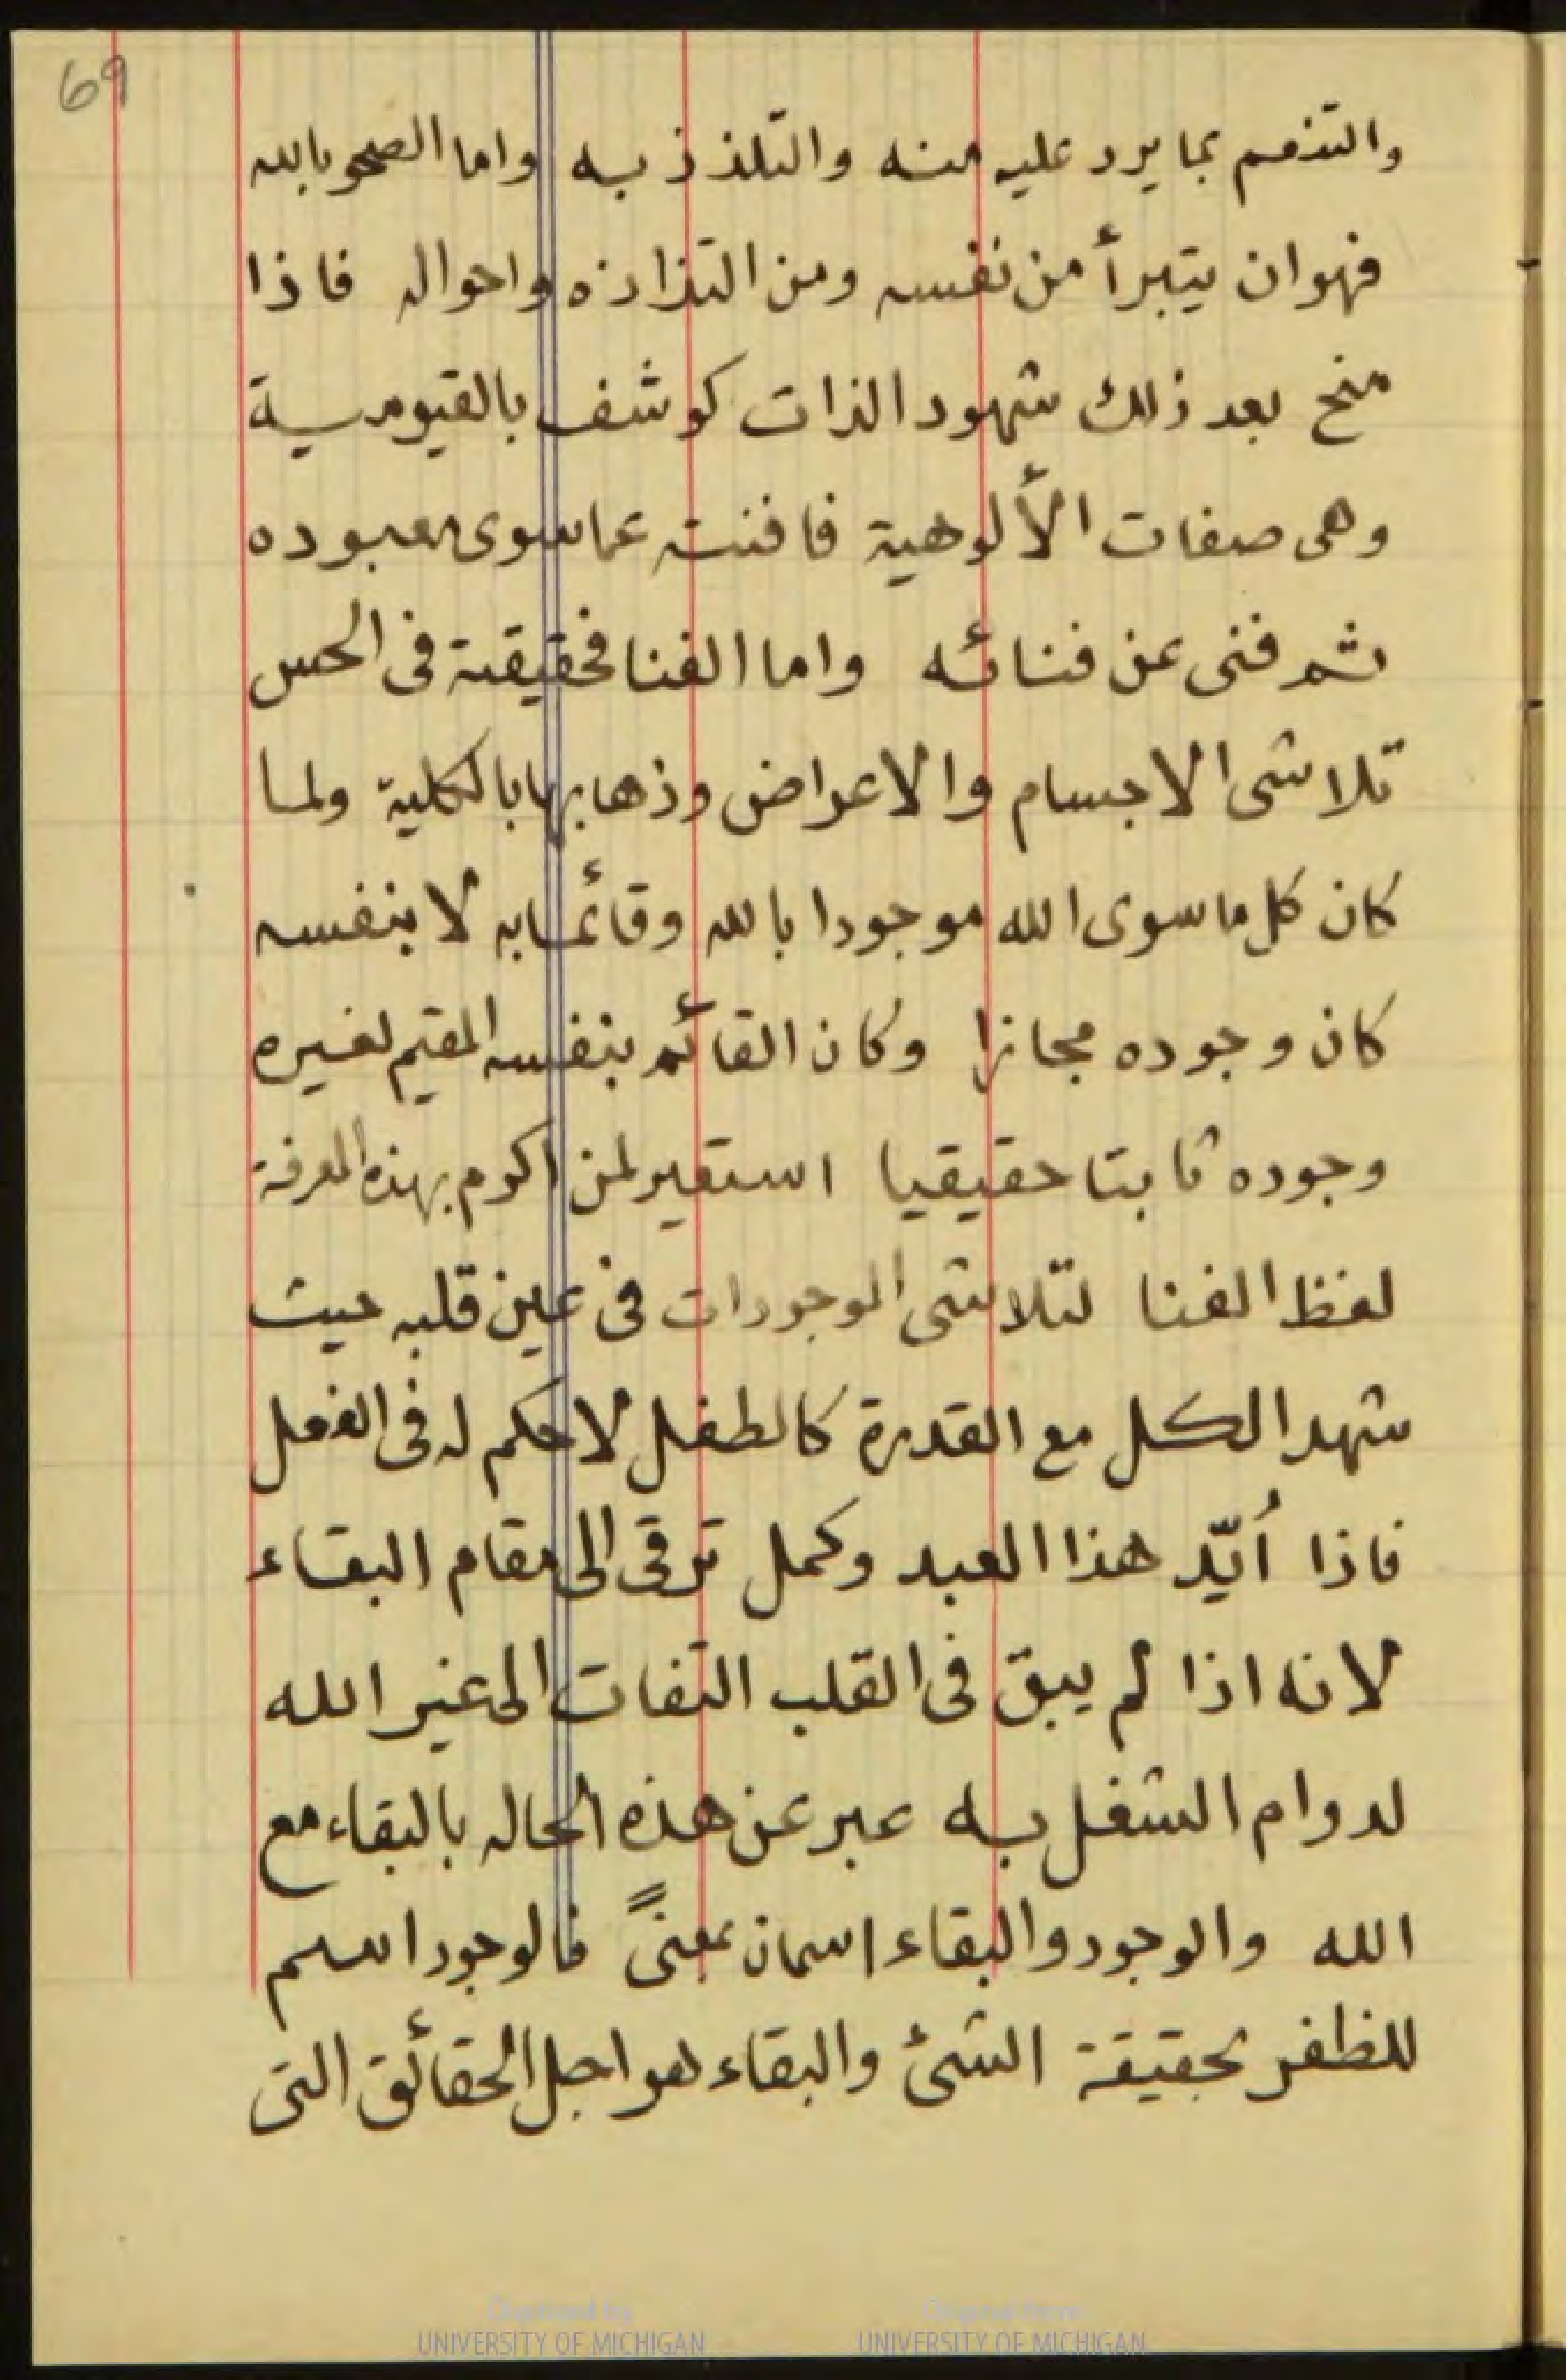 69
والتنعم بما يرد عليه منه والتلذذ به واما الصحو بالله
فهو ان يتبرأ من نفسه ومن التذاذه واحواله فاذا
منح بعد ذلك شهود الذات كوشف بالقيومية
وهى صفات الألوهية فافنته عما سوى معبوده
ثم فنى عن فنائه واما الفنا فحقيقته فى الحس
تلاشى الاجسام والاعراض وذهابها بالكلية ولما
كان كل ما سوى الله موجودا بالله وقائما به لا بنفسه
كان وجوده مجازا وكان القائم بنفسه المقيم لغيره
وجوده ثابتا حقيقيا استعير لمن اكرم بهذه المعرفة
لفظ الفنا لتلاشى الموجودات فى عين قلبه حيث
شهد الكل مع القدرة كالطفل لا حكم له فى الفعل
فاذا أيّد هذا العبد وكمل ترقى الى مقام البقاء
لانه اذا لم يبق فى القلب التفات الى غير الله
لدوام الشغل به عبر عن هذه الحاله بالبقاء مع
الله والوجود والبقاء اسمان بمعنىً فالوجود اسم
للظفر بحقيقة الشئ والبقاء هو اجل الحقائق التى
Digitized by
UNIVERSITY OF MICHIGAN
Original from
UNIVERSITY OF MICHIGAN